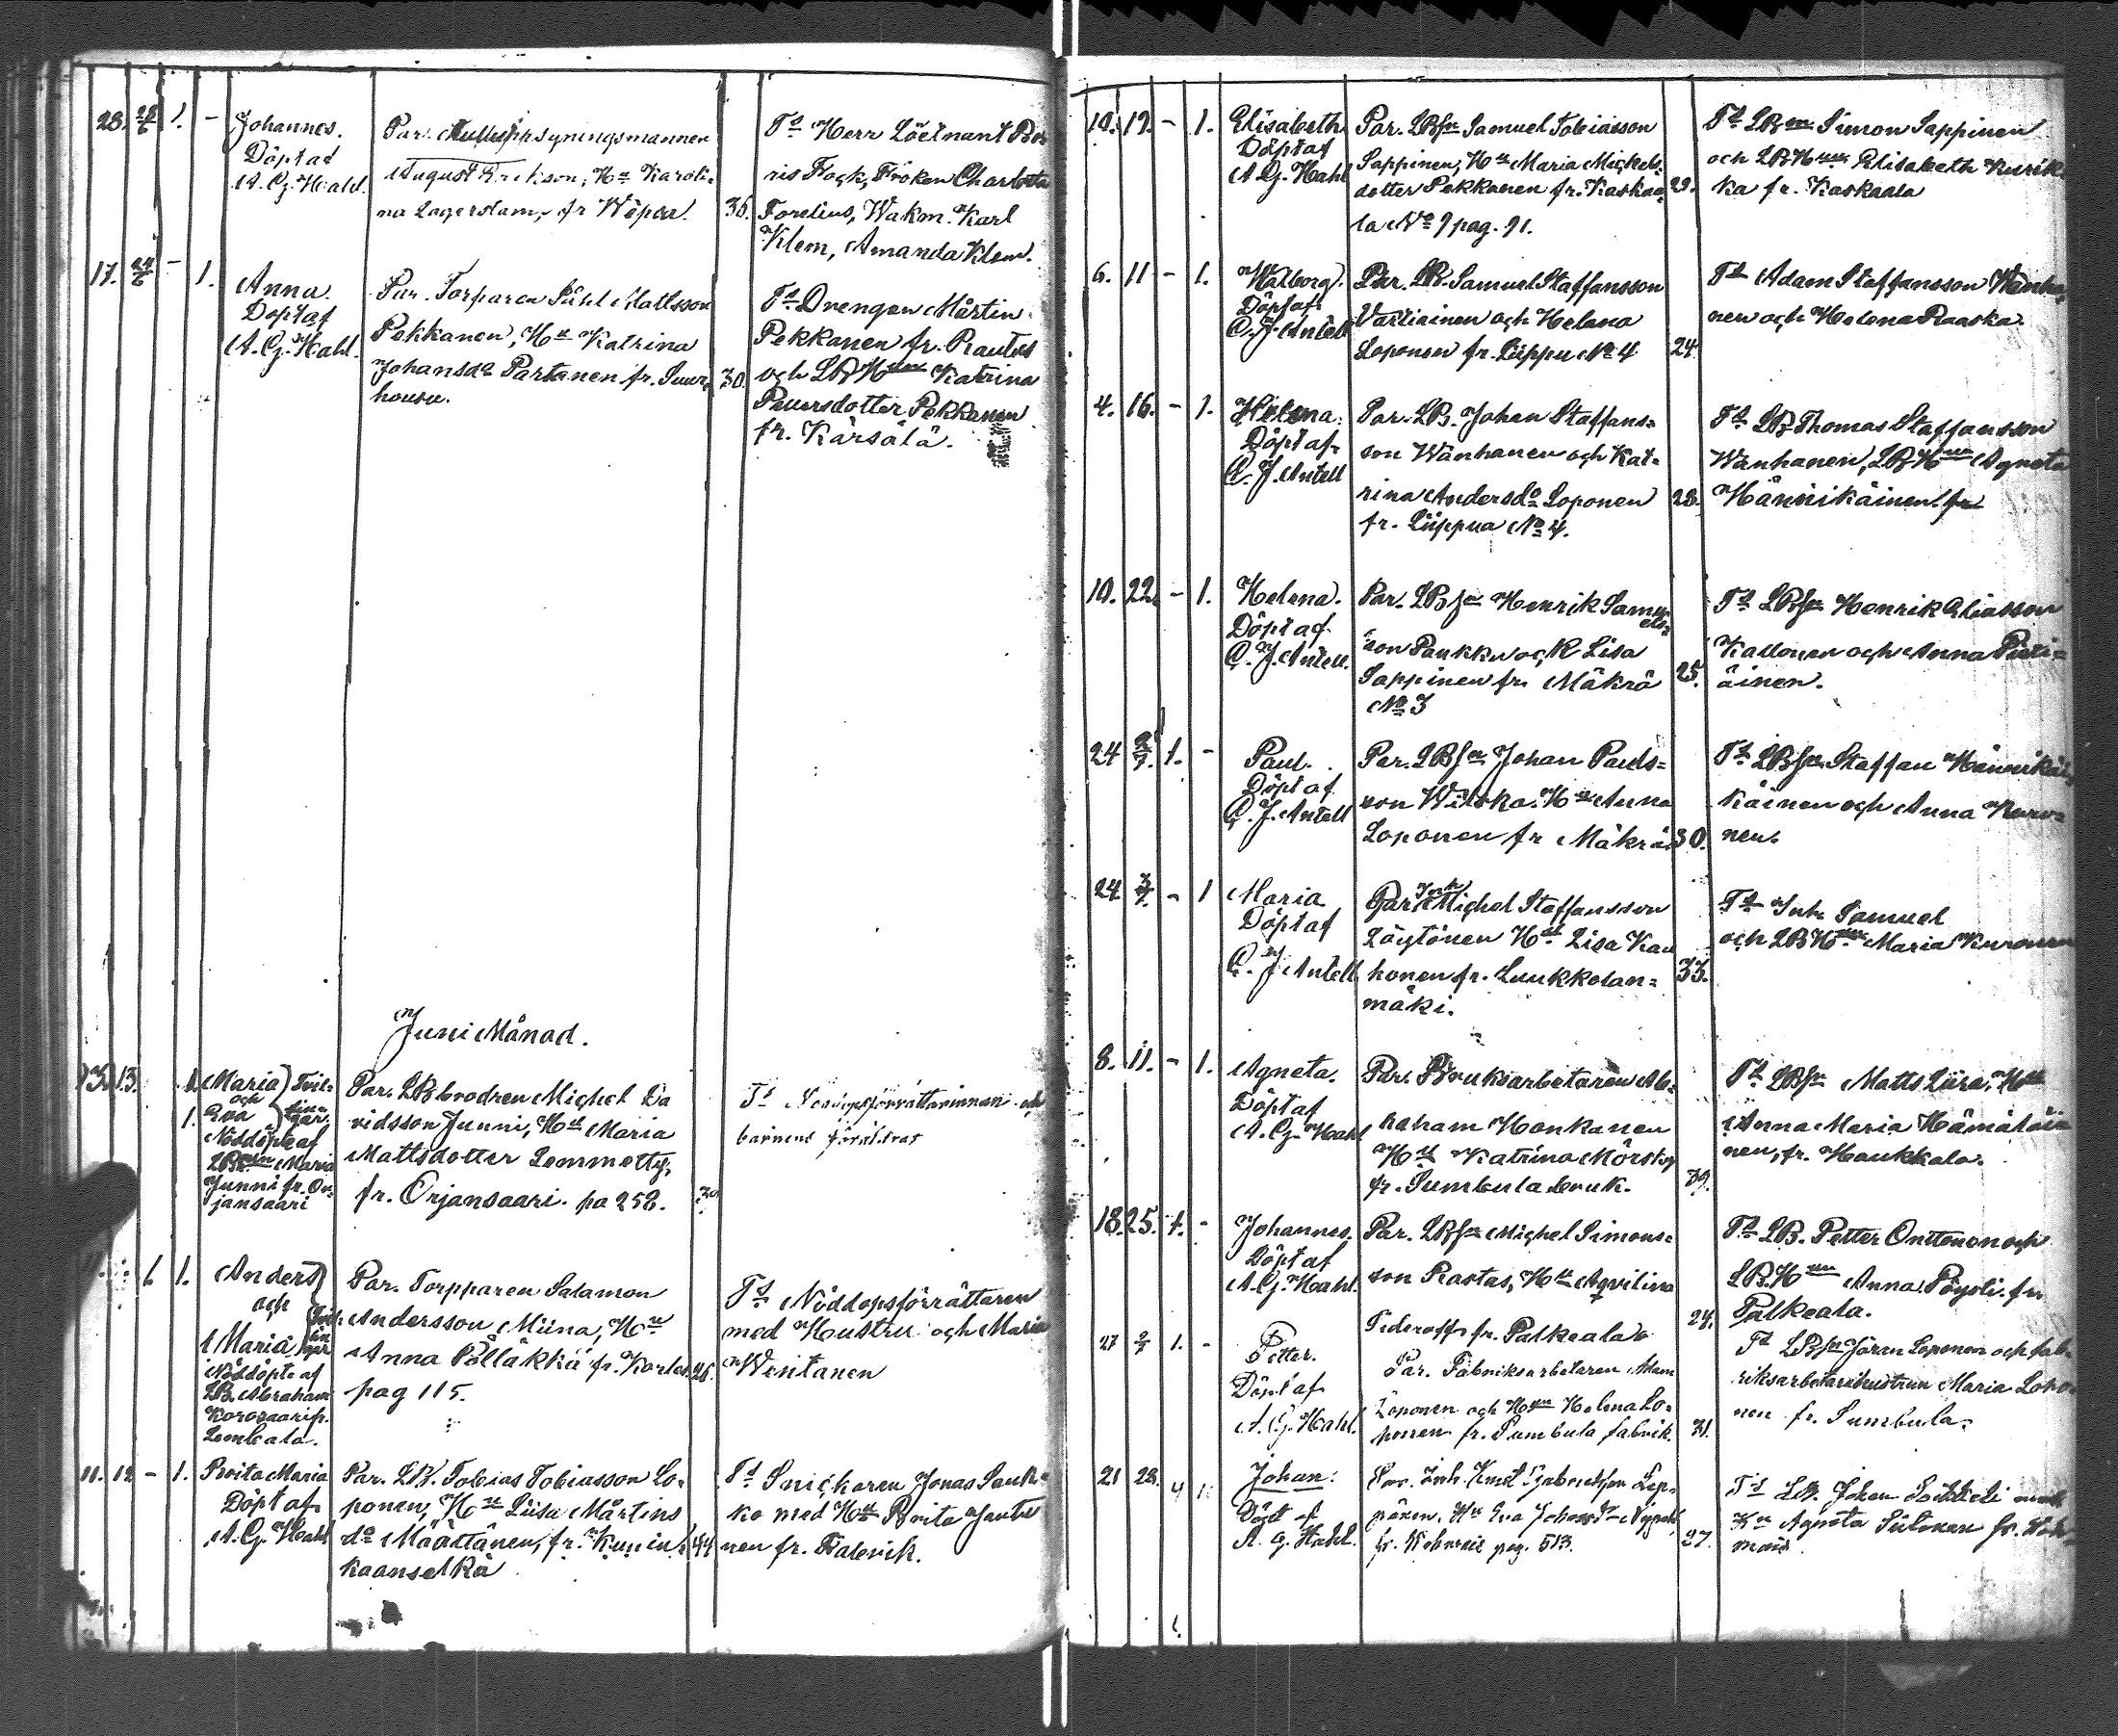 28. 28/6 1. -
Johannes.
Döpt af
A. G. Hahl.
Par.
August Erikson, Hu Karoli-
na Lagerstam, fr Wiipuri.
36.
Ts Herr Löitnant Bo-
ris Flock, Fröken Charlotta
Forelius, Wakm. Karl
Klem, Amanda Klem.
17. 24/6 - 1.
Anna.
Döpt af
A. G. Hahl.
Par. Torparen Matsson
Pekkanen, Hu Katrina
Johansdr Partanen fr. Suur-
housu.
30.
Ts Drengen Mårtin
Pekkanen fr. Rautus
och LBHun Katrina
Petersdotter Pekkanen
fr. Kärsälä.
Juni Månad.
13. 1.
1.
Maria
och
Eva
Tvil-
lin-
gar.
Nöddöpt af
Maria
Junni fr. Or-
jansaari
Par. LBbrodren Michel Da
vidsson Junni, Hu Maria
Mattsdotter Lemmetty,
fr. Orjansaari. pa 258.
Ts Nöddopsförrättarinnan och
barnens föräldrar
1. 1.
Anders
och
Maria
Nöddöpte af
LB. Abraham
Korosaari fr.
Lembala.
Par. Torpparen Salamon
Andersson Miina, Hu
Anna Pölläkkä fr.
pag 115.
Ts Nöddopsförrättaren
med Hustru och Maria
Wesitanen
11. 12 - 1.
Brita Maria
Döpt af
A. G. Hahl
Par. LB. Tobias Tobiasson Lo-
ponen, Hu Liisa Mårtins
dr Määttänen, fr. Kunin-
kaanselkä
44
Ts Snickaren Jonas
ko med Hu Brita
nen fr. Fabrik.
10. 19. - 1.
Elisabeth
Döpt af
A. G. Hahl
Par. LBsn Samuel Tobiasson
Sappinen, Hu Maria Mickels-
dotter Pekkanen fr. Kaskaa-
la No 9 pag. 91.
29.
Ts LBsn Simon Sappinen
och LBHun Elisabeth Kurik-
ka fr. Kaskaala
6. 11 - 1.
Walborg.
Döpt af
C. J. Antell
Par. LB. Samuel Staffansson
Vartiainen och Helena
Loponen fr. Liippu No 4
24.
Ts Adam Staffansson Wanha-
nen och Helena Raaska.
4. 16. - 1.
Helena.
Döpt af
C. J. Antell
Par. LB. Johan Staffans-
son Wanhanen och Kat-
rina Andersdr Loponen
fr. Liippua No 4.
28.
Ts LB Thomas Staffansson
Wanhanen, LBHun Agneta
Männikäinen fr
10. 22. - 1.
Helena.
Döpt af
C. J. Antell.
Par. LBsn Henrik Samu-
els-
son Paukku och Lisa
Sappinen fr. Mäkrä
No 3
25.
Ts LBsn Henrik Eliasson
Kallonen och Anna Pieti-
äinen.
24 2/7. 1. -
Paul.
Döpt af
C. J. Antell
Par. LBsn Johan Pauls-
son Wilska. Hu Anna
Loponen fr Mäkrä
30.
Ts LBsn Staffan Männikäi-
käinen och Anna Kuro-
nen.
24. 3/7. - 1
Maria
Döpt af
C. J Antell
Par. Inh Michel Staffansson
Löytönen Hu Lisa Kau
honen fr. Luukkolan-
mäki.
33.
Ts Inh Samuel
och LBHun Maria Kuronen
8. 11. - 1.
Agneta.
Döpt af
A. G. Hahl
Par. Bruksarbetaren Ab-
raham Honkanen
Hu Katrina Mörsky
fr. Sumbula bruk.
39.
Ts LBsn Matts Liira, Hu
Anna Maria Hämäläi
nen, fr. Haukkala.
18. 25. 1. -
Johannes.
Döpt af
A. G. Hahl.
Par. LBsn Michel Simons-
son Rastas, Hu Aqvilina
Fideroff fr. Palkeala
24.
Ts LB. Petter Onttonen och
LB.Hun Anna Pöysti. fr
Palkeala.
27 2/7 1. -
Petter.
Döpt af
A. G. Hahl.
Par. Fabriksarbetaren Adam
Loponen och Hun Helena Lo-
ponen fr. Sumbula fabrik.
31.
Ts LBsn Jöran Loponen och fab-
riksarbetarehustrun Maria Lopo-
nen fr. Sumbula.
21 28.
Johan.
Döpt af
A. G. Hahl.
Par. Inh. Knut
Hu Eva
pag. 513.
27.
Ts LB. Johan
Hu Agneta